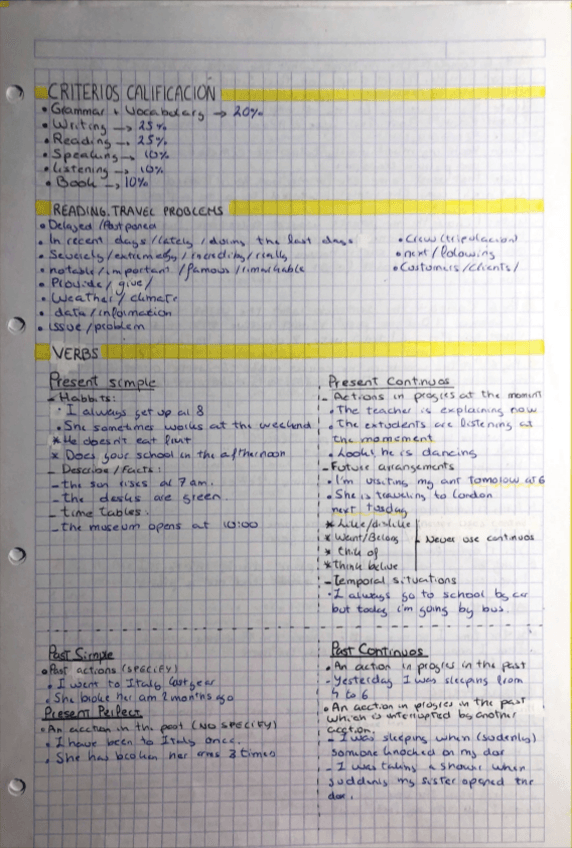 CRITERIOS CALIFICACION
• Grammar + Vocabulary → 20%
• Writing → 25%
• Reading → 25%
• Speaking → 10%
• Listening → 10%
• Book → 10%
READING. TRAVEL PROBLEMS
• Delayed / Postponed
• In recent days / lately / during the last days
• Severely / extremely / incredibly / really
• notable / important / famous / rimarkable
• Provide / give /
• Weather / climate
• data / information
• issue / problem
• Crew (tripulacion)
• next / folowing
• Costumers / clients /
VERBS
Present simple
- Habbits:
• I always get up at 8
• She sometimes works at the weekend
* He doesn't eat fruit
* Does your school in the afternoon
- Describe / Facts:
- the sun rises at 7 am.
- the desks are green.
- time tables:
- the museum opens at 10:00
Present Continuos
- Actions in progres at the moment
• The teacher is explaining now
• The extudents are listening at
the momement
• Look! he is dancing
- Future arrangements
• I'm visiting my ant tomolow at 6
• She is traveling to London
next tusday
* Like/dislike
* Want/Belong
* think of
* think belive
- Never use continuos
- Temporal situations
• I always go to school by car
but today i'm going by bus.
Past Simple
• Past actions (SPECIFY)
• I went to Italy last year
• She broke her arm 2 months ago
Present Perfect
• An acction in the past (NO SPECIFY)
• I have been to Italy once.
• She has broken her arms 3 times
Past Continuos
• An action in progres in the past
- Yesterday I was sleeping from
4 to 6
• An acction in progres in the past
which is interrupted by another
acction.
- I was sleeping when (sudenly)
someone knocked on my dor
- I was taking a shower when
suddenly my sister opened the
dor.